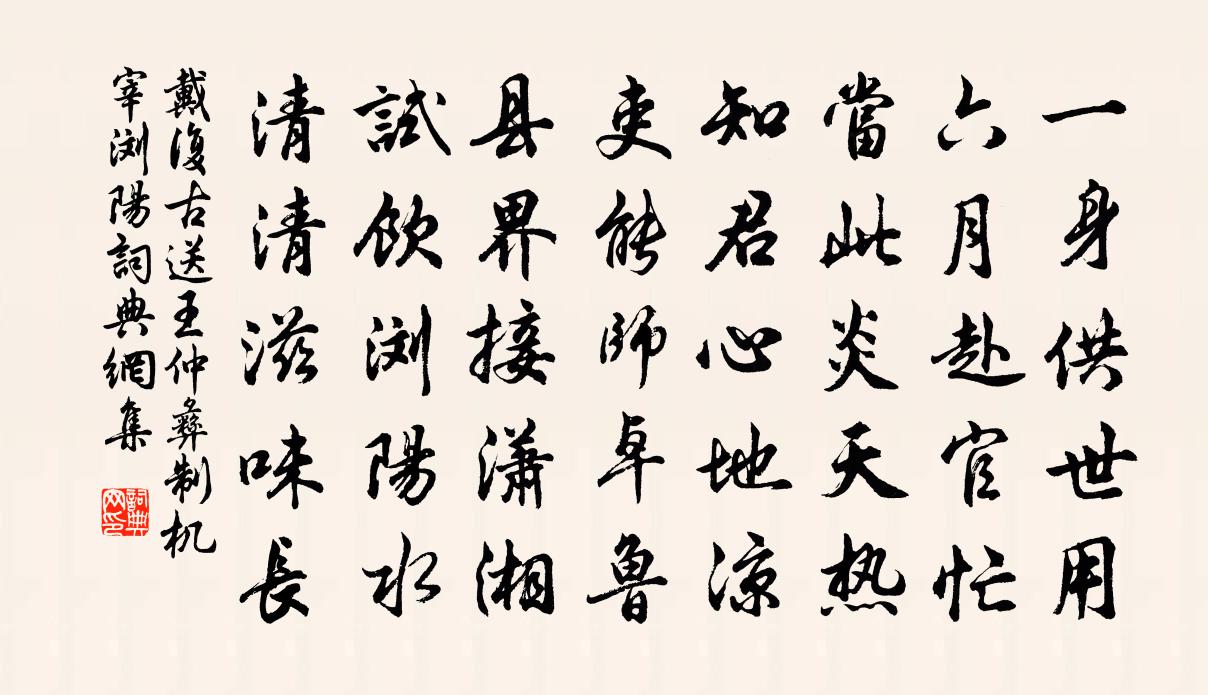 一身供世用
六月赴官忙
當此炎天热
知君心地凉
吏能師卓鲁
县界接潇湘
試飲浏陽水
清清滋味長
戴復古送王仲彝制机
宰浏陽詞典網集
詞典网印